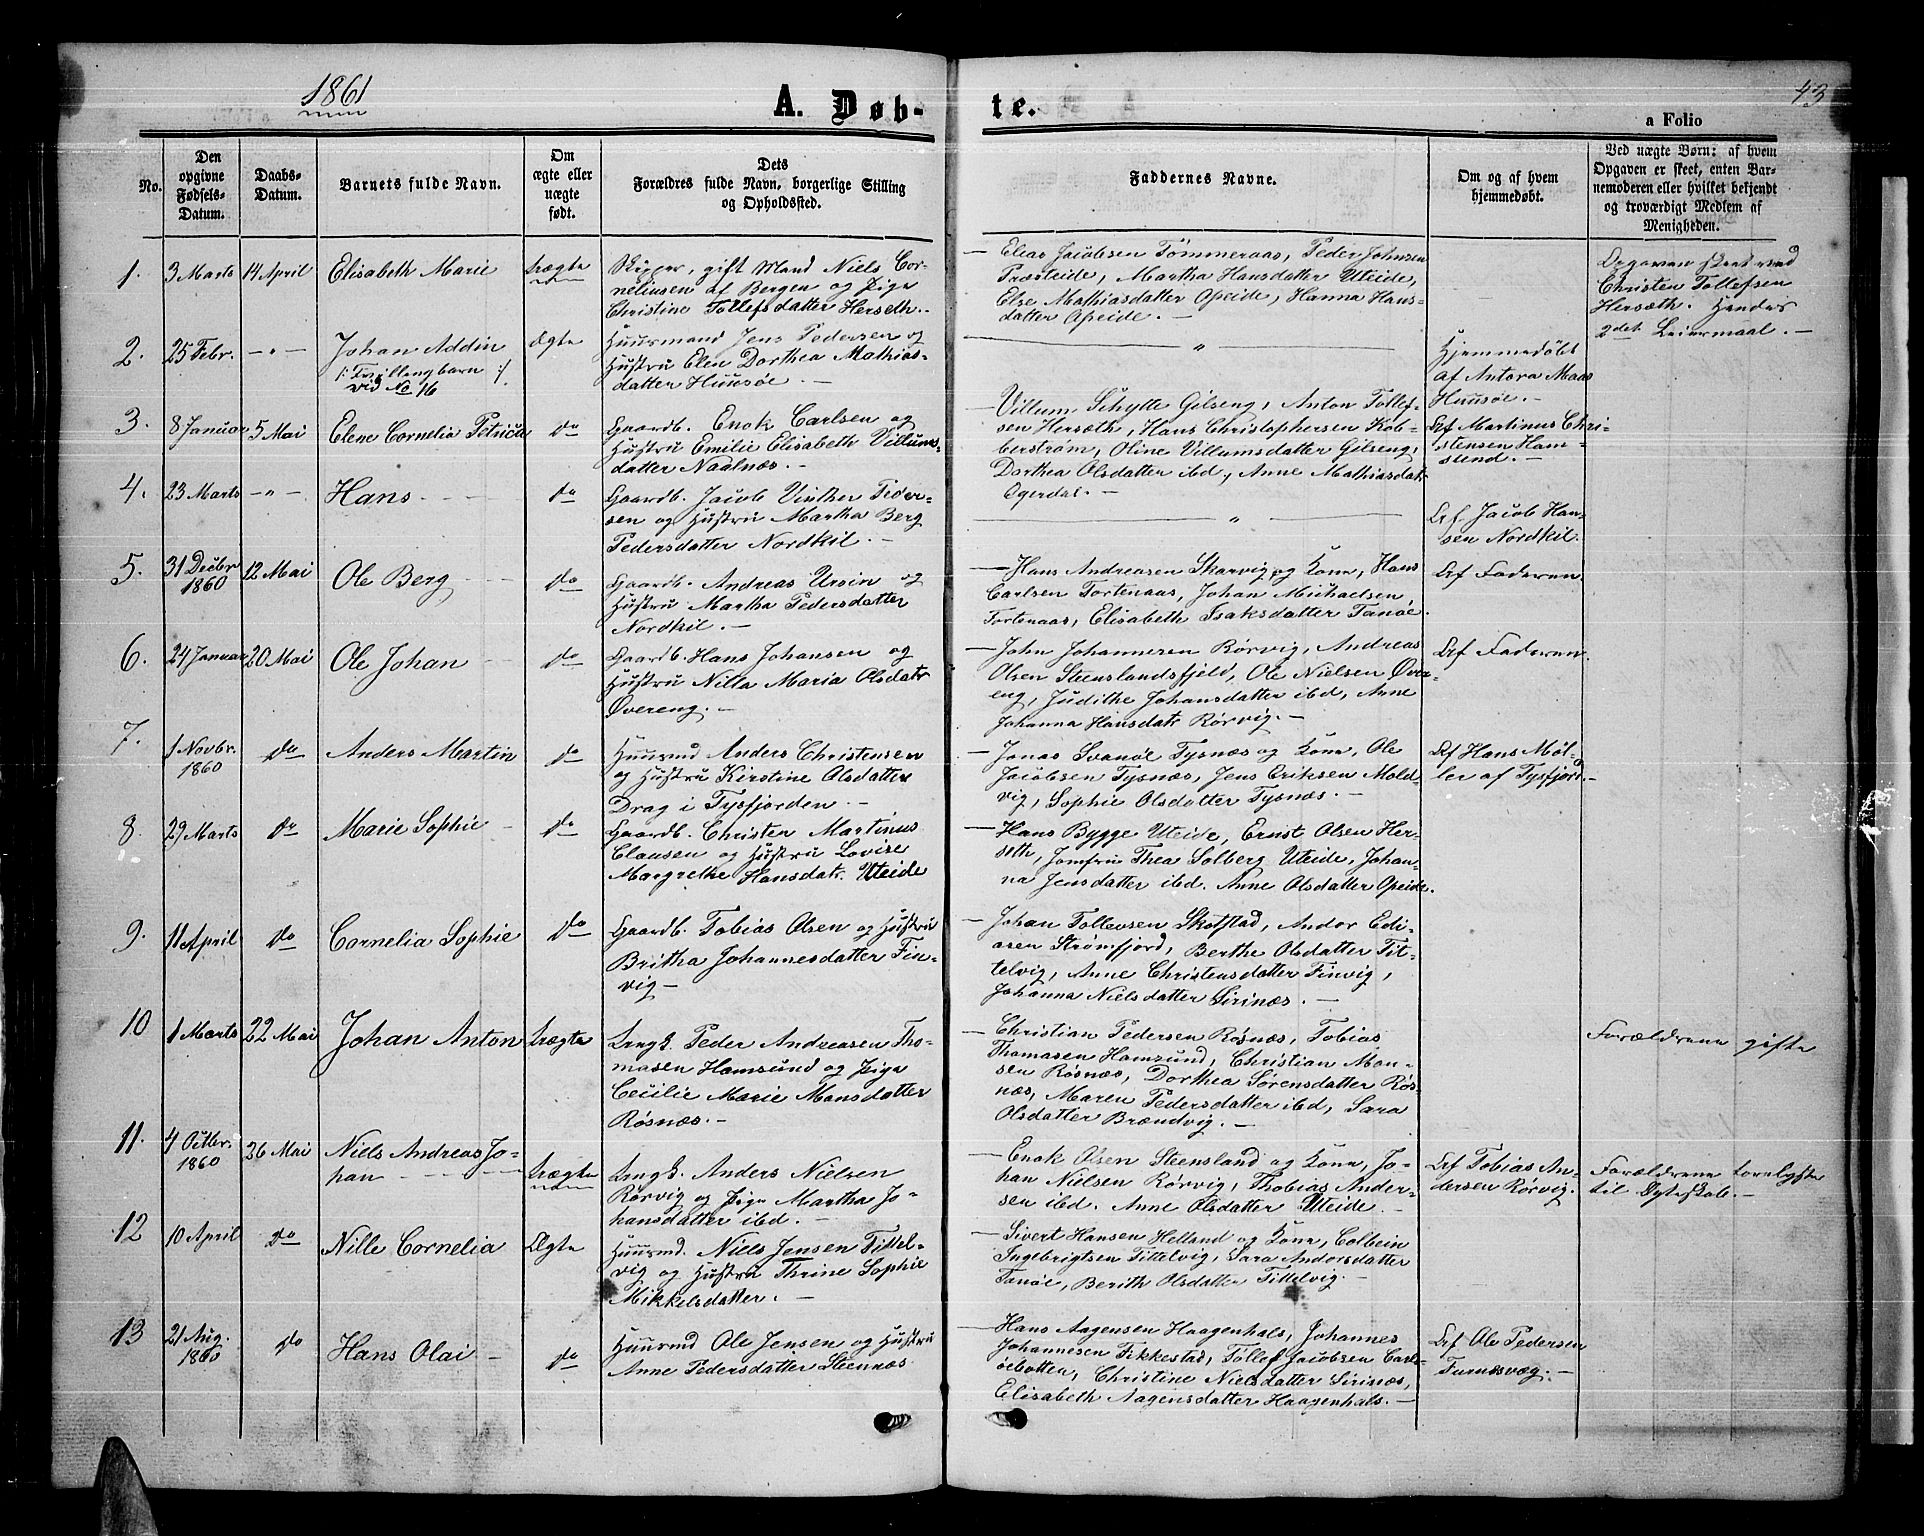 1861
43
A. Døb-
te.
a Folio
No.
Den
opgivne
Fødsels-
Datum.
Daabs-
Datum.
Barnets fulde Navn.
Om
ægte eller
uægte
født.
Dets
Forældres fulde Navn, borgerlige Stilling
og Opholdssted.
Faddernes Navne.
Om og af hvem
hjemmedøbt.
Ved uægte Børn: af hvem
Opgaven er skeet, enten Bar-
nemoderen eller hvilket bekjendt
og troværdigt Medlem af
Menigheden.
1.
3 Marts
14 April
Elisabeth Marie
Uægte
Skipper, gift Mand Niels Cor-
neliusen af Bergen og Pige
Christine Tollefsdatter Herseth.-
- Elias Jacobsen Tømmeraas, Peder Johnsen
Præsteide, Martha Hansdatter Uteide,
Else Mathiasdatter Opeide, Hanna Hans-
datter Opeide. -
Opgaven skeet ved
Christen Tollefsen
Hersæth. Hendes
2det Leiermaal. -
2.
25 Febr.
- " -
Johan Addin
/: Tvillingbarn :/
vid No 16
Ægte
Huusmand Jens Pedersen og
Hustru Elen Dorthea Mathias-
datter Huusøe. -
"
Hjemmedøbt
af Antora Maas
Huusøe. -
3.
8 Januar
5 Mai
Elene Cornelia Petrica
do
Gaardb. Enok Carlsen og
Hustru Emilie Elisabeth Villums-
datter Naalnæs. -
- Villum Schytte Gilseng, Anton Tollef-
sen Hersæth, Hans Christophersen Kob-
berstrøm, Oline Villumsdatter Gilseng,
Dorthea Olsdatter ibd, Anne Mathiasdatr
Ogerdal. -
Af Martinus Chri-
stensen Ham-
sund. -
4.
23 Marts
- " -
Hans
do
Gaardb. Jacob Vinther Peder-
sen og Hustru Martha Berg
Pedersdatter Nordkil. -
"
Af Jacob Han-
sen Nordkil.
5.
31 Decbr
1860
12 Mai
Ole Berg
do
Gaardb. Andreas Ursin og
Hustru Martha Pedersdatter
Nordkil. -
- Hans Andreasen Skarvig og Kone, Hans
Carlsen Tortenaas, Johan Michaelsen,
Tortenaas, Elisabeth Isaksdatter Tanøe.
Af Faderen.
6.
24 Januar
20 Mai
Ole Johan
do
Gaardb. Hans Johansen og
Hustru Nilla Maria Olsdatr
Øvereng. -
- John Johannesen Rørvig, Andreas
Olsen Steenslandsfjeld, Ole Nielsen Øver-
eng, Judithe Johansdatter ibd, Anne
Johanna Hansdatr Rørvig. -
Af Faderen.
7.
1 Novbr.
1860
do
Anders Martin
do
Huusmd Anders Christensen
og Hustru Kirstine Olsdatter
Drag i Tysfjorden. -
- Jonas Svanøe Tysnæs og Kone, Ole
Jacobsen Tysnæs, Jens Eriksen Mold-
vig, Sophie Olsdatter Tysnæs. -
Af Hans Møl-
ler af Tysfjord. -
8.
29 Marts
do
Marie Sophie
do
Gaardb. Christen Martinus
Clausen og Hustru Lovise
Margrethe Hansdatr. Uteide
- Hans Bygge Uteide, Ernst Olsen Her-
seth, Jomfru Thea Solberg Uteide, Johan-
na Jensdatter ibd. Anne Olsdatter Opeide.
9.
11 April
do
Cornelia Sophie
do
Gaardb. Tobias Olsen og Hustru
Britha Johannesdatter Fin-
vig -
- Johan Tollevsen Skotstad, Andor Edi-
asen Strømfjord, Berthe Olsdatter Tit-
telvig, Anne Christensdatter Finvig,
Johanna Nielsdatter Sirinæs. -
10
1 Marts
22 Mai
Johan Anton
Uægte
Ungk. Peder Andreasen Tho-
masen Hamsund og Pige
Cecilie Marie Monsdatter
Røsnæs. -
- Christian Pedersen Røsnæs, Tobias
Thomasen Hamsund, Christian Mon-
sen Røsnæs, Dorthea Sørensdatter Røs-
næs, Maren Pedersdatter ibd, Sara
Olsdatter Brændvig. -
Forældrene gifte
11.
4 Octbr.
1860
26 Mai
Niels Andreas Jo-
han
Uægte
Ungk. Anders Nielsen
Rørvig og Pige Martha Jo-
hansdatter ibd. -
- Enok Olsen Steensland og Kone, Jo-
han Nielsen Rørvig, Thobias Ander-
sen ibd. Anne Olsdatter Uteide. -
Af Tobias An-
dersen Rørvig.
Forældrene trolovede
til Ægteskab. -
12
10 April
do
Nille Cornelia
Ægte
Huusmd. Niels Jensen Tittel-
vig og Hustru Thrine Sophie
Mikkelsdatter. -
- Sivert Hansen Helland og Kone, Colbein
Ingebrigtsen Tittelvig, Sara Andorsdatter
Tanøe, Berith Olsdatter Tittelvig. -
13
21 Aug.
1860
do
Hans Olai
do
Huusmd Ole Jensen og Hustru
Anne Pedersdatter Steennæs
- Hans Aagensen Haagenhals, Johannes
Johannesen Fikkestad, Tollef Jacobsen Carls-
øebotten, Christine Nielsdatter Sirinæs,
Elisabeth Aagensdatter Haagenhals. -
Af Ole Pedersen
Furnesvæg. -